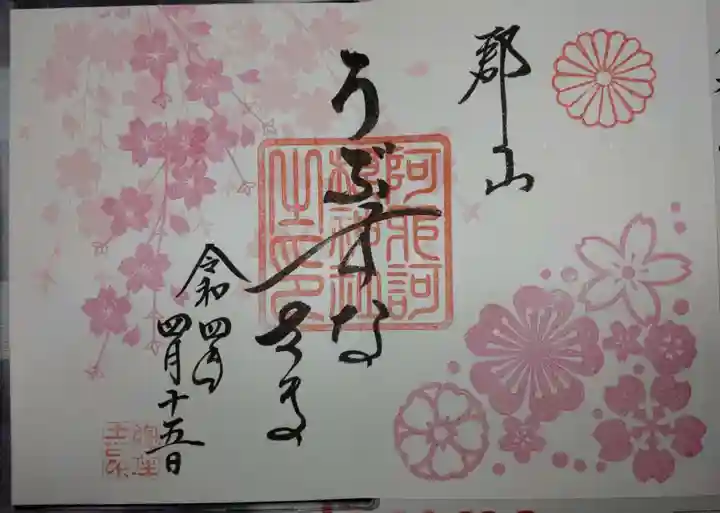 郡山
うぶすな
さま
阿邪訶
根神社
之印
令和四年
四月十五日